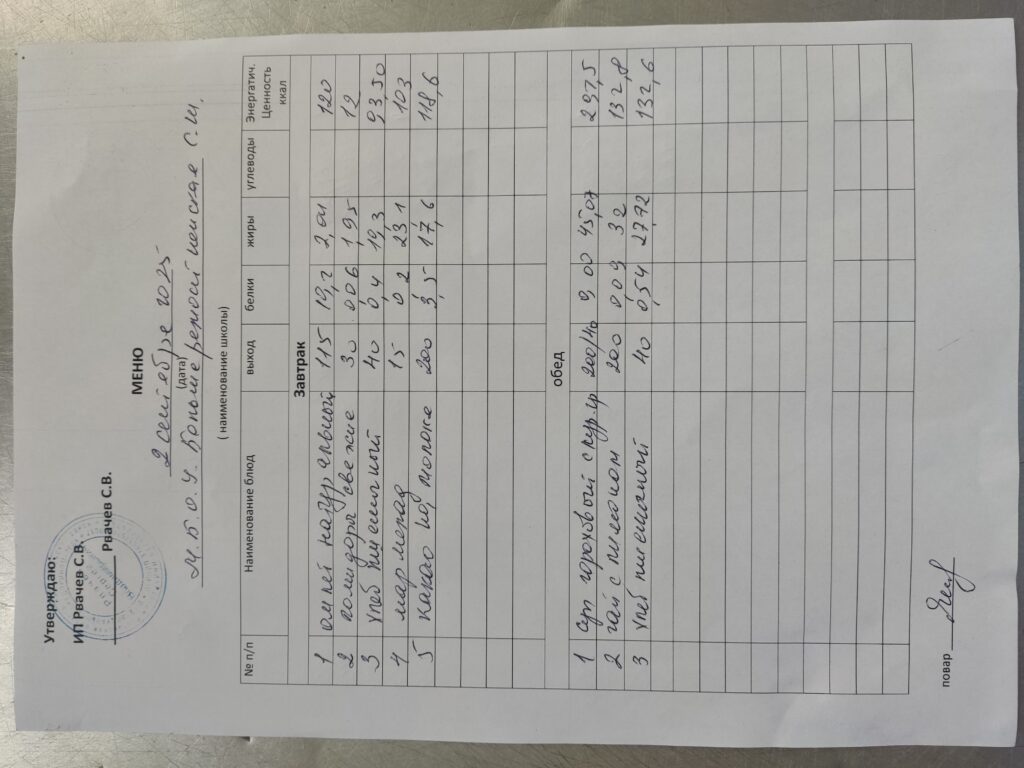 Утверждаю:
ИП Рвачев С.В.
Рвачев С.В.
МЕНЮ
2 сентября 2025
(дата)
М.Б.О.У. С.Ш.
( наименование школы)
№ п/п Наименование блюд выход белки жиры углеводы Энергатич. Ценность ккал
Завтрак
1 омлет натуральный 115 19,2 2,01 120
2 помидоры свежие 30 006 1,95 12
3 хлеб пшеничный 40 0,4 19,3 93,50
4 мармелад 15 0,2 23,1 103
5 какао на молоке 200 3,5 17,6 118,6
обед
1 суп гороховый с кур. гр 200/40 9,00 45,07 297,5
2 чай с лимоном 200 009 32 132,8
3 хлеб пшеничный 40 0,54 27,72 132,6
повар